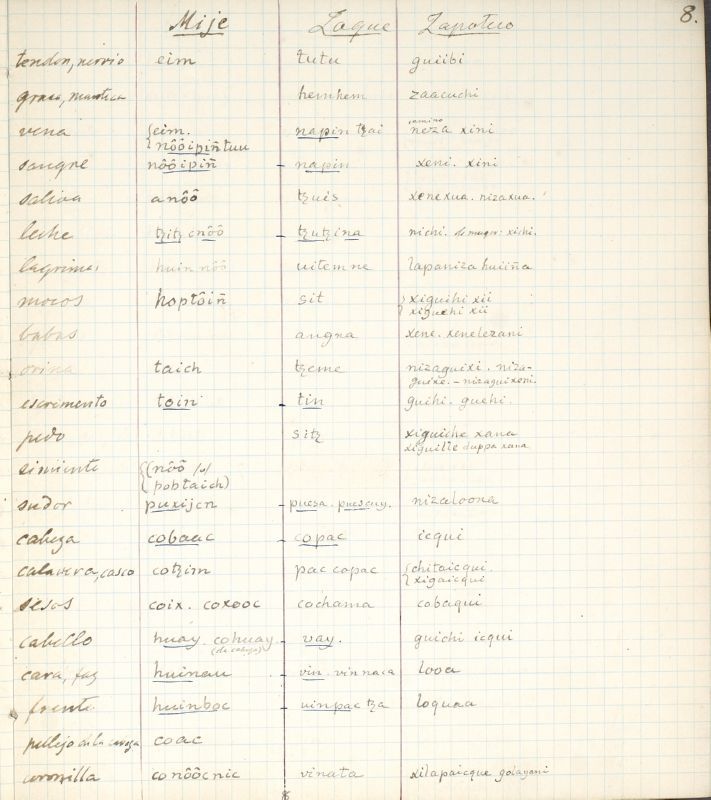 8.
Mije Zoque Zapoteco
tendon, nervio eim tutu guiibi
grasa, manteca hemhem zaacuchi
vena { eim. napin tzai camino neza xini
{ nôôipiñtuu
sangre nôôipiñ - napin xeni. xini
saliva anôô tzuis xenexua. nizaxua.
leche tzitz cnôô - tzutzina nichi. de muger: xichi.
lagrimas huin nôô uitemne lapaniza huiiña
mocos hoptôiñ sit { xiguihi xii
{ xiguehi xii
babas angna xene. xenelezani
orina taich tzeme nizaguixi. niza-
guixe. - nizaguixeni.
escrimento toin - tin guihi. guehi.
pedo sitz xiguiche xana
xiguille duppa xana
simiente {(nôô /o/
{ pobtaich)
sudor puxijcn - puesa. puescuy. nizaloona
cabeza cobaac - copac icqui
calavera, casco cotzim pac copac { chitaicqui.
{ xigaicqui
sesos coix. coxooc cochama cobaqui
cabello huay. cohuay - vay. guichi icqui
(de cabeza)
cara, faz huinau - vin. vin naca looa
frente huinboc - uinpac tza loquaa
pellejo de la cabeza coac
coronilla conôôcnic vinata xilapaicque golayoni
8